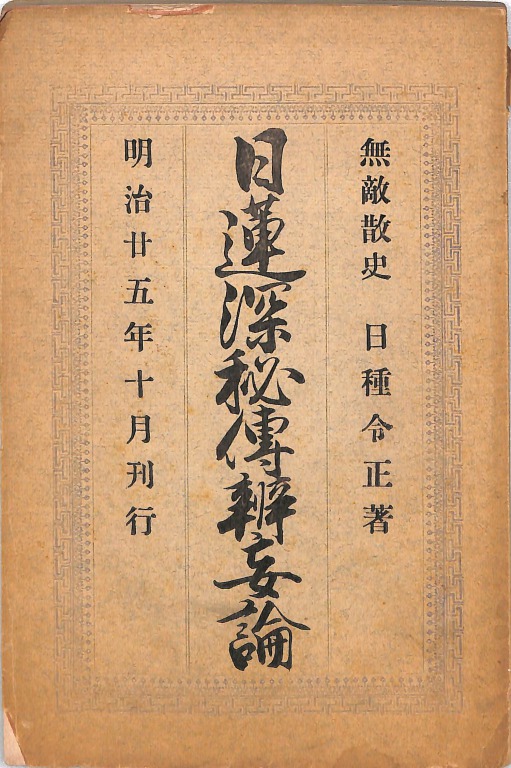 無敵散史　日種令正著
日蓮深秘傳辨妄論
明治廿五年十月刊行